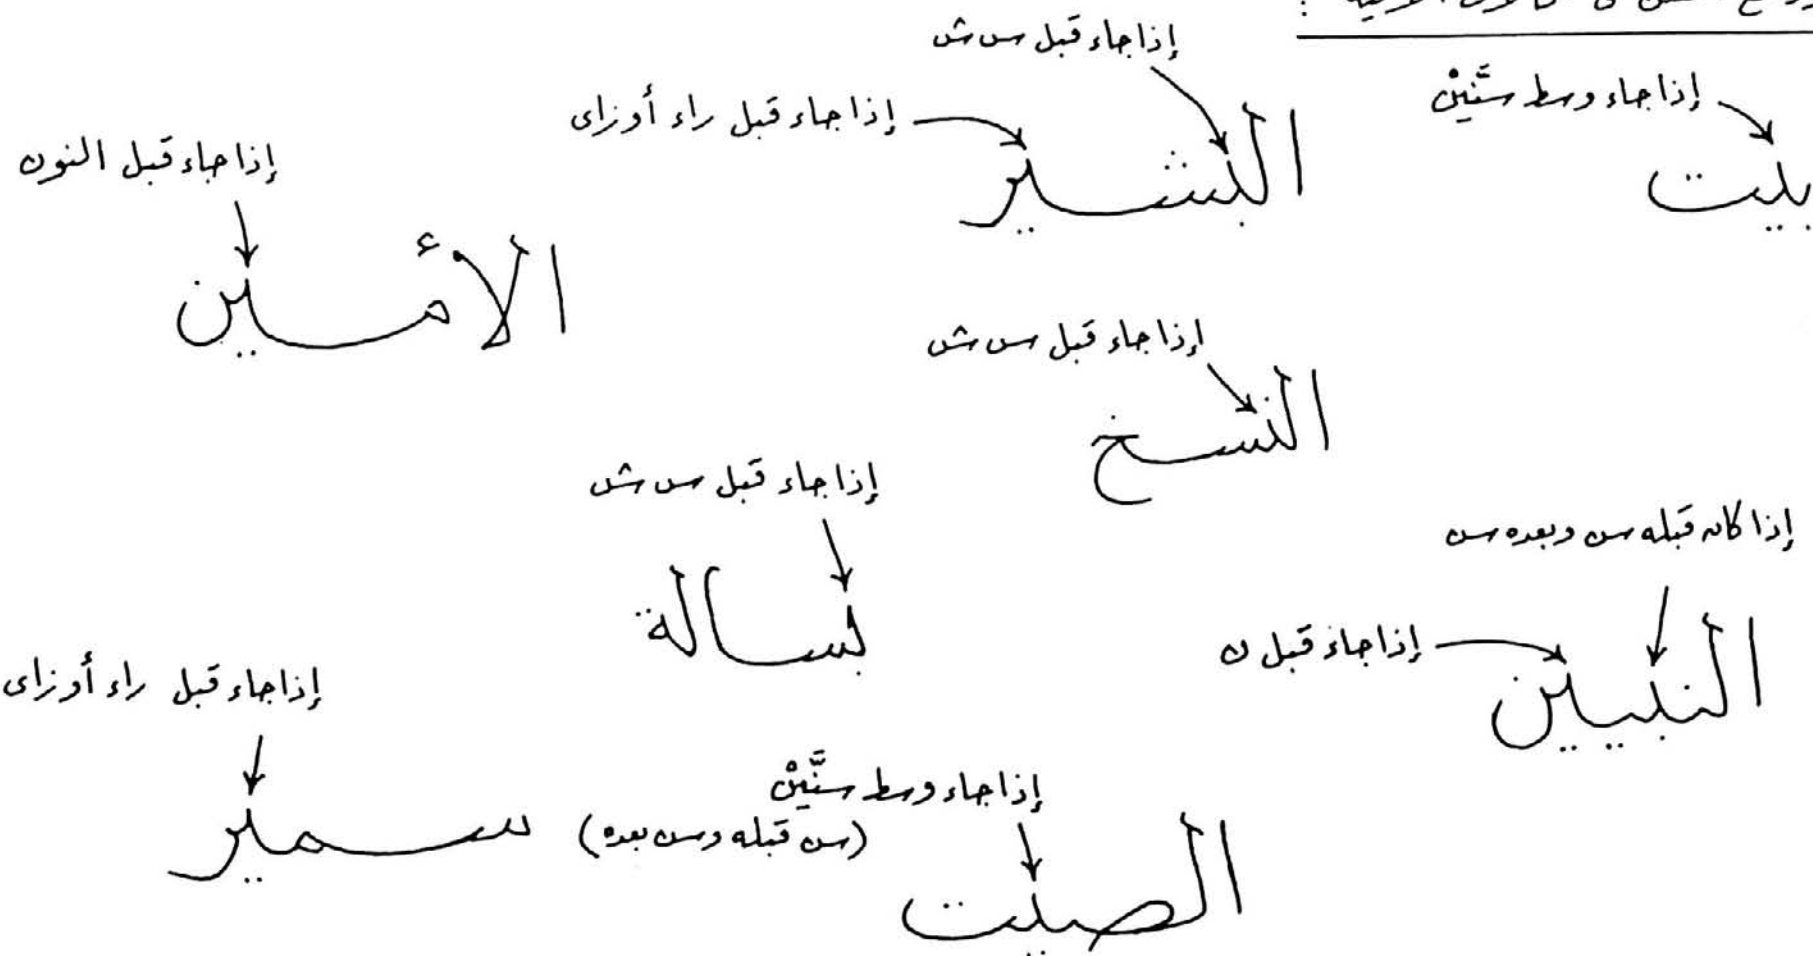 إذا جاء قبل س ش
إذا جاء وسط سنَّتينْ
إذا جاء قبل راء أو زاى
بيت
البشير
إذا جاء قبل النون
الأمين
إذا جاء قبل س ش
النسخ
إذا جاء قبل س ش
بسالة
إذا كان قبله سن وبعده سن
إذا جاء قبل ن
النبيين
إذا جاء قبل راء أو زاى
سمير
إذا جاء وسط سنَّتينْ
(سن قبله وسن بعده)
الصيت